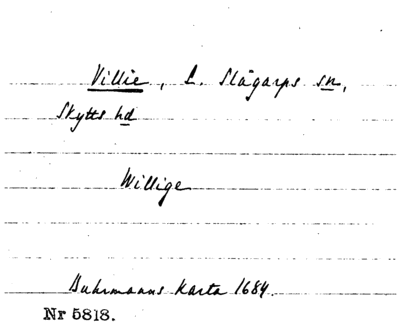 Villie, L. Slågarps sn,
Skytts hd
Willige
Buhrmanns Karta 1684.
Nr 5818.